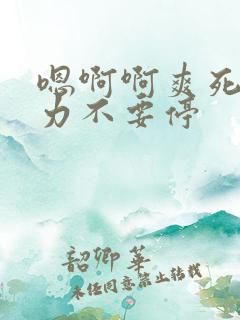 嗯啊啊爽死
力不要停
韶卿华
未经同意禁止转载